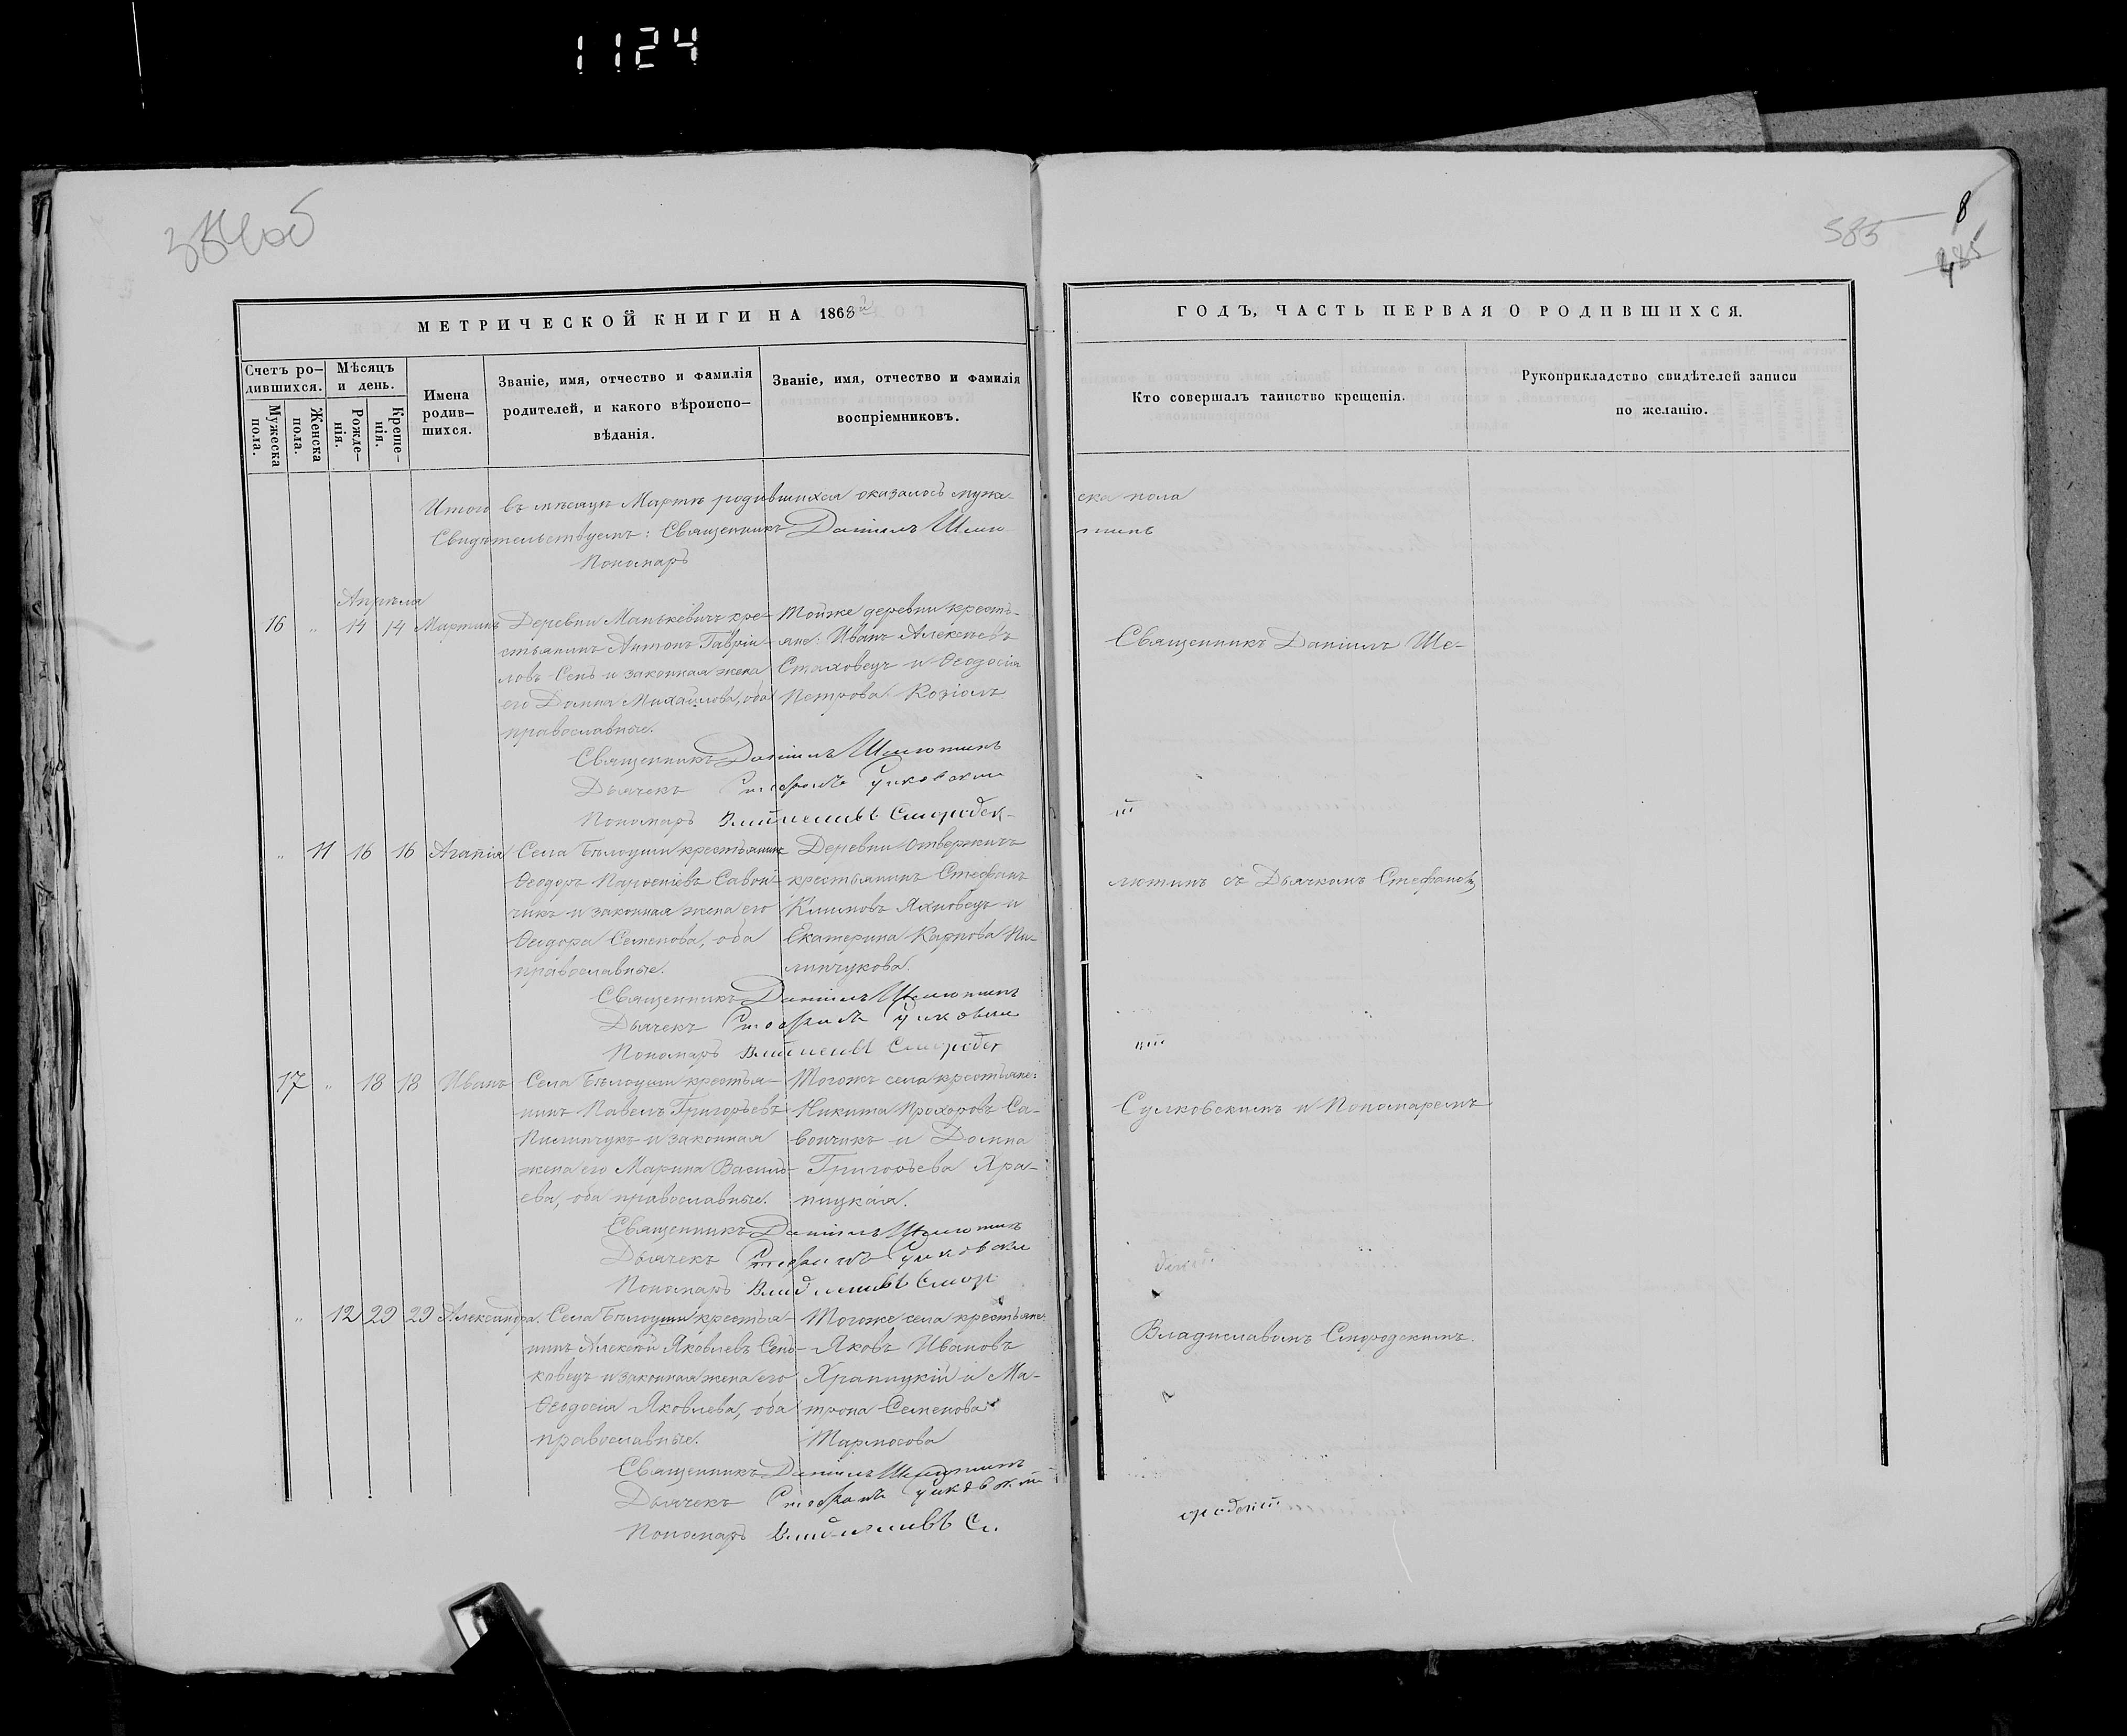 1124
384 об
585
8
485
МЕТРИЧЕСКОЙ КНИГИ НА 1868й
ГОДЪ, ЧАСТЬ ПЕРВАЯ О РОДИВШИХСЯ.
Счетъ ро-
дившихся.
Мѣсяцъ
и день.
Мужеска
пола.
Женска
пола.
Рожде-
нія.
Креще-
нія.
Имена
родив-
шихся.
Званіе, имя, отчество и фамилія
родителей, и какого вѣроиспо-
вѣданія.
Званіе, имя, отчество и фамилія
воспріемниковъ.
Кто совершалъ таинство крещенія.
Рукоприкладство свидѣтелей записи
по желанію.
Итого въ мѣсяцѣ Мартѣ родившихся оказалось муже-
ска пола
Свидѣтельствуемъ: Священникъ Даніилъ Шелю
тинъ
Пономарь
Апрѣля
16 " 14 14 Мартинъ
Деревни Манькевичъ кре-
стьянинъ Антонъ Гавріи-
ловъ Сень и законная жена
его Домна Михайлова, оба
православные.
Тойже деревни кресть-
яне: Иванъ Алексѣевъ
Стаховецъ и Ѳеодосія
Петрова Козіолъ
Священникъ Даніилъ Ше-
Священникъ Даніилъ Шелютинъ
Дьячекъ Стефанъ Сулковскій
Пономарь Владиславъ Смородск-
ій
" 11 16 16 Агапія
Села Бѣлоуши крестьянинъ
Ѳеодоръ Парѳеніевъ Савон-
чикъ и законная жена его
Ѳеодора Семенова, оба
православные.
Деревни Отвержичъ
крестьянинъ Стефанъ
Климовъ Яхновецъ и
Екатерина Карпова Пи-
липчукова.
лютинъ съ Дьячкомъ Стефаномъ
Священникъ Даніилъ Шелютинъ
Дьячекъ Стефанъ
Пономарь Владиславъ Смородск
ій
17 " 18 18 Иванъ
Села Бѣлоуши крестья-
нинъ Павелъ Григорьевъ
Пилипчукъ и законная
жена его Марина Василь-
ева, оба православные.
Тогожъ села крестьяне:
Никита Прохоровъ Са-
вончикъ и Домна
Григорьева Хра-
пицкая.
Сулковскимъ и Пономаремъ
Священникъ Даніилъ Шелютинъ
Дьячекъ Стефанъ Сулковскі
Пономарь Владиславъ Смор
одскій
" 12 29 29 Александра.
Села Бѣлоуши крестья-
нинъ Алексѣй Яковлевъ Сень-
ковецъ и законная жена его
Ѳеодосія Яковлева, оба
православные.
Тогоже села крестьяне:
Яковъ Ивановъ
Храпицкій и Ма-
трона Семенова
Тармосова
Владиславомъ Смородскимъ.
Священникъ Даніилъ Шелютинъ
Дьячекъ Стефанъ Сулковскій
Пономарь Владиславъ См.
ородскій